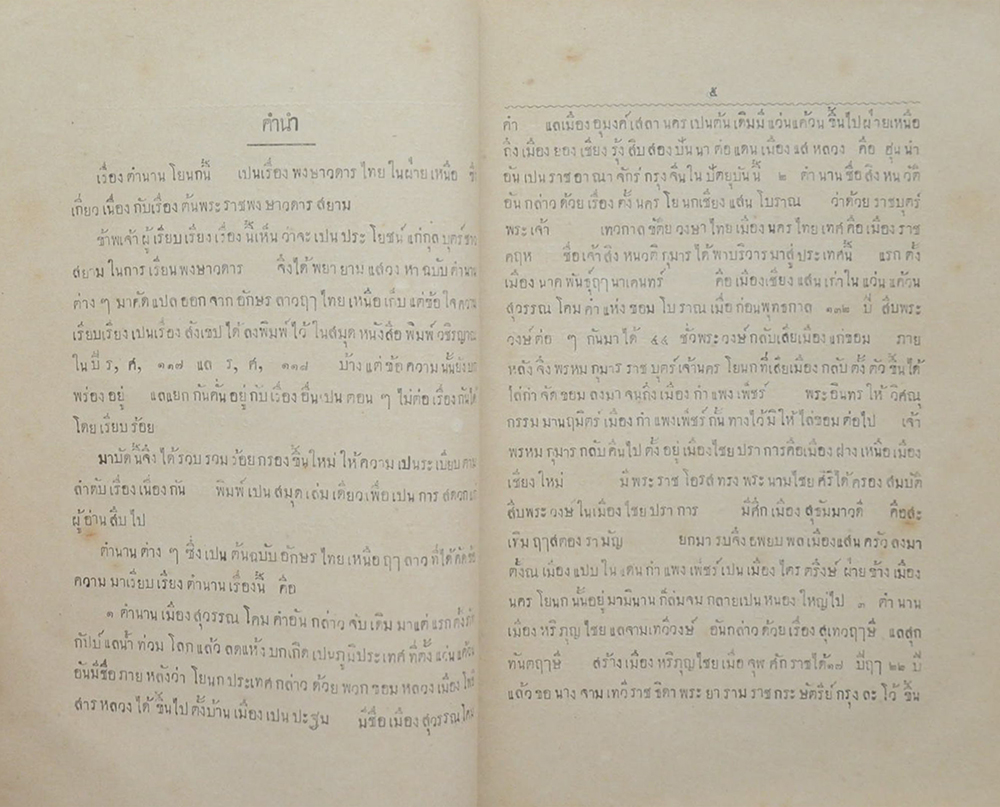 คำนำ
เรื่อง ตำนาน โยนกนี้ เปนเรื่อง พงษาวดาร ไทย ในฝ่าย เหนือ ซึ่
เกี่ยว เนื่อง กับเรื่อง ต้นพระ ราชพง ษาวดาร สยาม
ข้าพเจ้า ผู้ เรียบ เรียง เรื่อง นี้เห็น ว่าจะ เปน ประ โยชน์ แก่กุล บุตร์ ชาว
สยาม ในการ เรียน พงษาวดาร จึ่งได้ พยา ยาม แสวง หา ฉบับ ตำนาน
ต่าง ๆ มาคัด แปล ออก จาก อักษร ลาวฤๅ ไทย เหนือ เก็บ แต่ข้อ ใจ ความ
เรียบเรียง เปนเรื่อง สังเขป ได้ ลงพิมพ์ ไว้ ในสมุด หนังสือ พิมพ์ วชิรญาณ
ใน ปี ร, ศ, ๑๑๗ แล ร, ศ, ๑๑๘ บ้าง แต่ ข้อ ความ นั้นยังบก
พร่อง อยู่ แลแยก กันคั่น อยู่ กับ เรื่อง อื่นเปน ตอน ๆ ไม่ต่อ เรื่อง กันได้
โดย เรียบ ร้อย
มาบัด นี้จึง ได้ รวบ รวม ร้อย กรอง ขึ้นใหม่ ให้ ความ เปนระเบียบ ตาม
ลำดับ เรื่อง เนื่อง กัน พิมพ์ เปน สมุด เล่ม เดียว เพื่อ เปน การ สดวก แก่
ผู้ อ่าน สืบ ไป
ตำนาน ต่าง ๆ ซึ่ง เปน ต้นฉบับ อักษร ไทย เหนือ ฤๅ ลาว ที่ได้ คัดข้อ
ความ มาเรียบ เรียง ตำนาน เรื่องนี้ คือ
๑ ตำนาน เมือง สุวรรณ โคม คำอัน กล่าว จับ เดิม มาแต่ แรก ตั้งภัทร
กัปป์ แลน้ำ ท่วม โลก แล้ว ลดแห้ง บกเกิด เปนภูมิประเทศ ที่ตั้ง แว่นแคว้น
อันมีชื่อ ภาย หลังว่า โยนก ประเทศ กล่าว ด้วย พวก ขอม หลวง เมือง โพธิ
สาร หลวง ได้ ขึ้นไป ตั้งบ้าน เมือง เปน ปะฐม มีชื่อ เมือง สุวรรณ โคม
๕
คำ แลเมือง อุมงค์ เสลา นคร เปนต้น เดิมมี แว่นแคว้น ขึ้นไป ฝ่ายเหนือ
ถึง เมือง ยอง เชียง รุ้ง สิบ สอง ปัน นา ต่อ แดน เมือง แส หลวง คือ ฮุน หนำ
อัน เปน ราช อา ณา จักร์ กรุง จีนใน ปัตยุบัน นี้ ๒ ตำ นาน ชื่อ สิง หน วัติ
อัน กล่าว ด้วย เรื่อง ตั้ง นคร โย นกเชียง แสน โบราณ ว่าด้วย ราชบุตร์
พระ เจ้า เทวกาล ขัติย วงษา ไทย เมือง นคร ไทย เทศ คือ เมือง ราช
คฤห ชื่อ เจ้า สิง หนวติ กุมาร ได้ พาบริวาร มาสู่ ประเทศนี้ แรก ตั้ง
เมือง นาค พันธุ์ฤๅ นาเคนทร์ คือ เมืองเชียง แสน เก่าใน แว่น แคว้น
สุวรรณ โคม คำ แห่ง ขอม โบ ราณ เมื่อ ก่อนพุทธกาล ๑๓๒ ปี สืบพระ
วงษ์ ต่อ ๆ กันมา ได้ ๔๔ ชั่วพระ วงษ์ กลับเสียเมือง แก่ขอม ภาย
หลัง จึง พรหม กุมาร ราช บุตร์ เจ้านคร โยนก ที่เสีย เมือง กลับ ตั้ง ตัว ขึ้นได้
ไล่กำ จัด ขอม ลงมา จนถึง เมือง กำ แพง เพ็ชร์ พระ อินทร ให้ วิศณุ
กรรม มานฤมิตร์ เมือง กำ แพงเพ็ชร์ กั้น ทางไว้ มิ ให้ ไล่ขอม ต่อไป เจ้า
พรหม กุมาร กลับ คืนไป ตั้ง อยู่ เมืองไชย ปรา การคือเมือง ฝาง เหนือ เมือง
เชียง ใหม่ มี พระ ราช โอรส ทรง พระ นามไชย ศิริ ได้ ครอง สมบัติ
สืบพระ วงษ์ ในเมือง ไชย ปรา การ มีศึก เมือง สุธัมมาวดี คือสะ
เทิม ฤๅสตอง รามัญ ยกมา รบจึง อพยบ พล เมืองแสน ครัว ลงมา
ตั้งณ เมือง แปบ ใน แดน กำ แพง เพ็ชร์ เปน เมือง ไตร ตรึงษ์ ฝ่าย ข้าง เมือง
นคร โยนก นั้นอยู่ มามินาน ก็ล่มจม กลายเปน หนอง ใหญ่ไป ๓ ตำ นาน
เมือง หริ ภุญ ไชย แลจามเทวีวงษ์ อันกล่าว ด้วย เรื่อง สุเทวฤๅษี แลสุก
ทันตฤๅษี สร้าง เมือง หริ ภุญ ไชย เมื่อ จุฬ ศัก ราชได้๑๗ ปีฤๅ ๒๒ ปี
แล้ว ขอ นาง จาม เทวี ราช ธิดา พระ ยา ราม ราช กระ ษัตรีย์ กรุง ละ โว้ ขึ้น